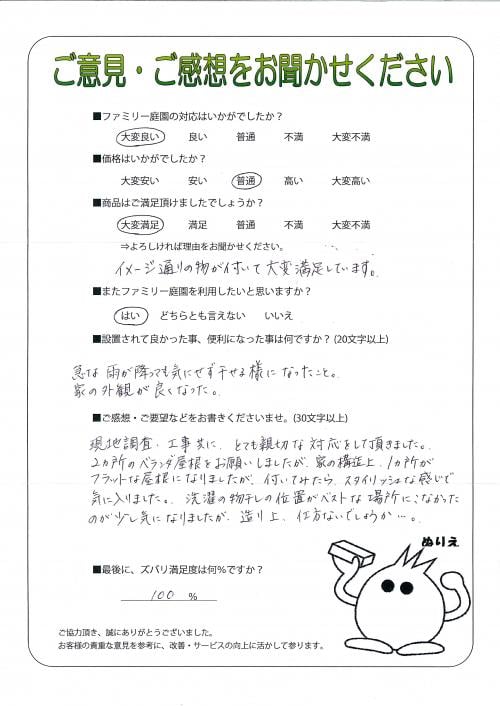 ご意見・ご感想をお聞かせください
■ファミリー庭園の対応はいかがでしたか？
大変良い 良い 普通 不満 大変不満
■価格はいかがでしたか？
大変安い 安い 普通 高い 大変高い
■商品はご満足頂けましたでしょうか？
大変満足 満足 普通 不満 大変不満
⇒よろしければ理由をお聞かせください。
イメージ通りの物が付いて大変満足しています。
■またファミリー庭園を利用したいと思いますか？
はい どちらとも言えない いいえ
■設置されて良かった事、便利になった事は何ですか？(20文字以上)
急な雨が降っても気にせず干せる様になったこと。
家の外観が良くなった。
■ご感想・ご要望などをお書きくださいませ。(30文字以上)
現地調査・工事共に、とても親切な対応をして頂きました。
2カ所のベランダ屋根をお願いしましたが、家の構造上、1カ所が
フラットな屋根になりましたが、付いてみたら、スタイリッシュな感じで
気に入りました。洗濯の物干しの位置がベストな場所にこなかった
のが少し気になりましたが、造り上、仕方ないでしょうか…。
ぬりえ
■最後に、ズバリ満足度は何％ですか？
100 %
ご協力頂き、誠にありがとうございました。
お客様の貴重な意見を参考に、改善・サービスの向上に活かして参ります。